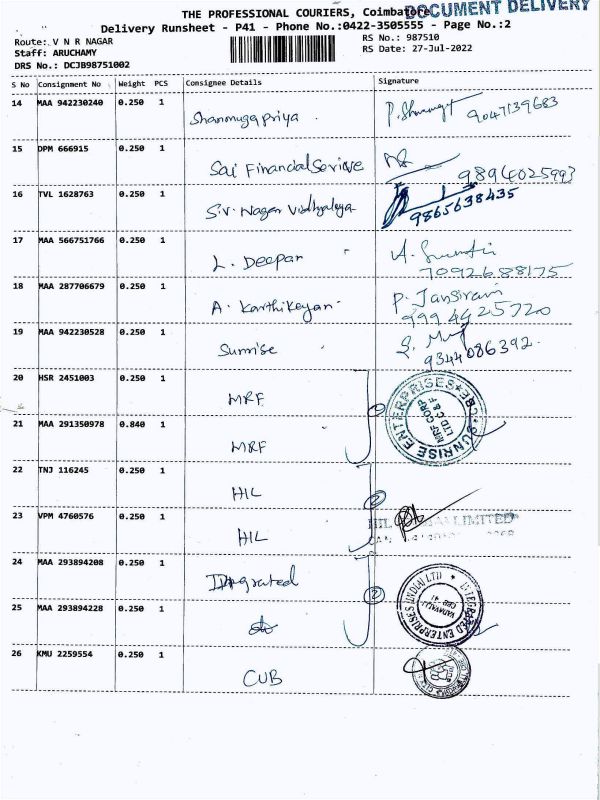 THE PROFESSIONAL COURIERS, Coimbatore
DOCUMENT DELIVERY
Delivery Runsheet - P41 - Phone No.:0422-3505555 - Page No.:2
Route: V N R NAGAR
RS No.: 987510
Staff: ARUCHAMY
RS Date: 27-Jul-2022
DRS No.: DCJB98751002
S No Consignment No Weight PCS Consignee Details Signature
14 MAA 942230240 0.250 1 Shanmugapriya 9047139683
15 DPM 666915 0.250 1 Sai Financial Serivve 9894025993
16 TVL 1628763 0.250 1 S.V. Nagar Vidhyalaya 9865638435
17 MAA 566751766 0.250 1 L. Deepan 7092688175
18 MAA 287706679 0.250 1 A. Karthikeyan P. Jansirani
9994425720
19 MAA 942230528 0.250 1 Sunrise 9344086392
20 HSR 2451003 0.250 1 MRF
SUNRISE ENTERPRISES CBE
MRF CORP LTD C & F
21 MAA 291350978 0.840 1 MRF
22 TNJ 116245 0.250 1 HIL
23 VPM 4760576 0.250 1 HIL
LIMITED
24 MAA 293894208 0.250 1 Integrated
INTEGRATED ENTERPRISES (INDIA) LTD
25 MAA 293894228 0.250 1
26 KMU 2259554 0.250 1 CUB